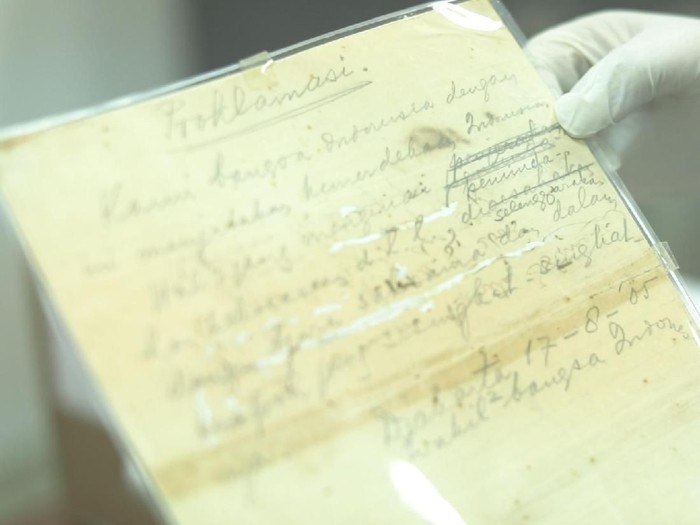 Proklamasi.
Kami bangsa Indonesia dengan
ini menjatakan kemerdekaan Indonesia
Hal2 jang mengenai peminda-
d.l.l., diselenggarakan
dengan tjara seksama dan dalam
tempoh jang sesingkat-singkat
Djakarta, 17-8-'05
Wakil2 bangsa Indones